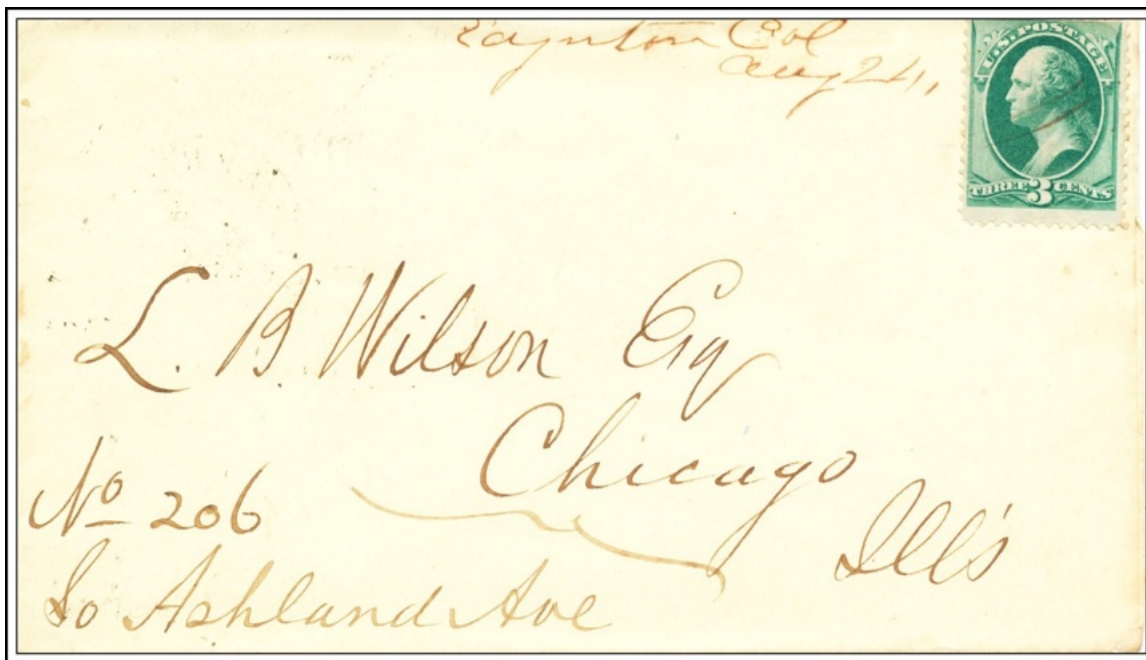 Col
Aug 24,,
U.S. POSTAGE
THREE 3 CENTS
L. B. Wilson Esq
Chicago
Ills
No 206
So Ashland Ave